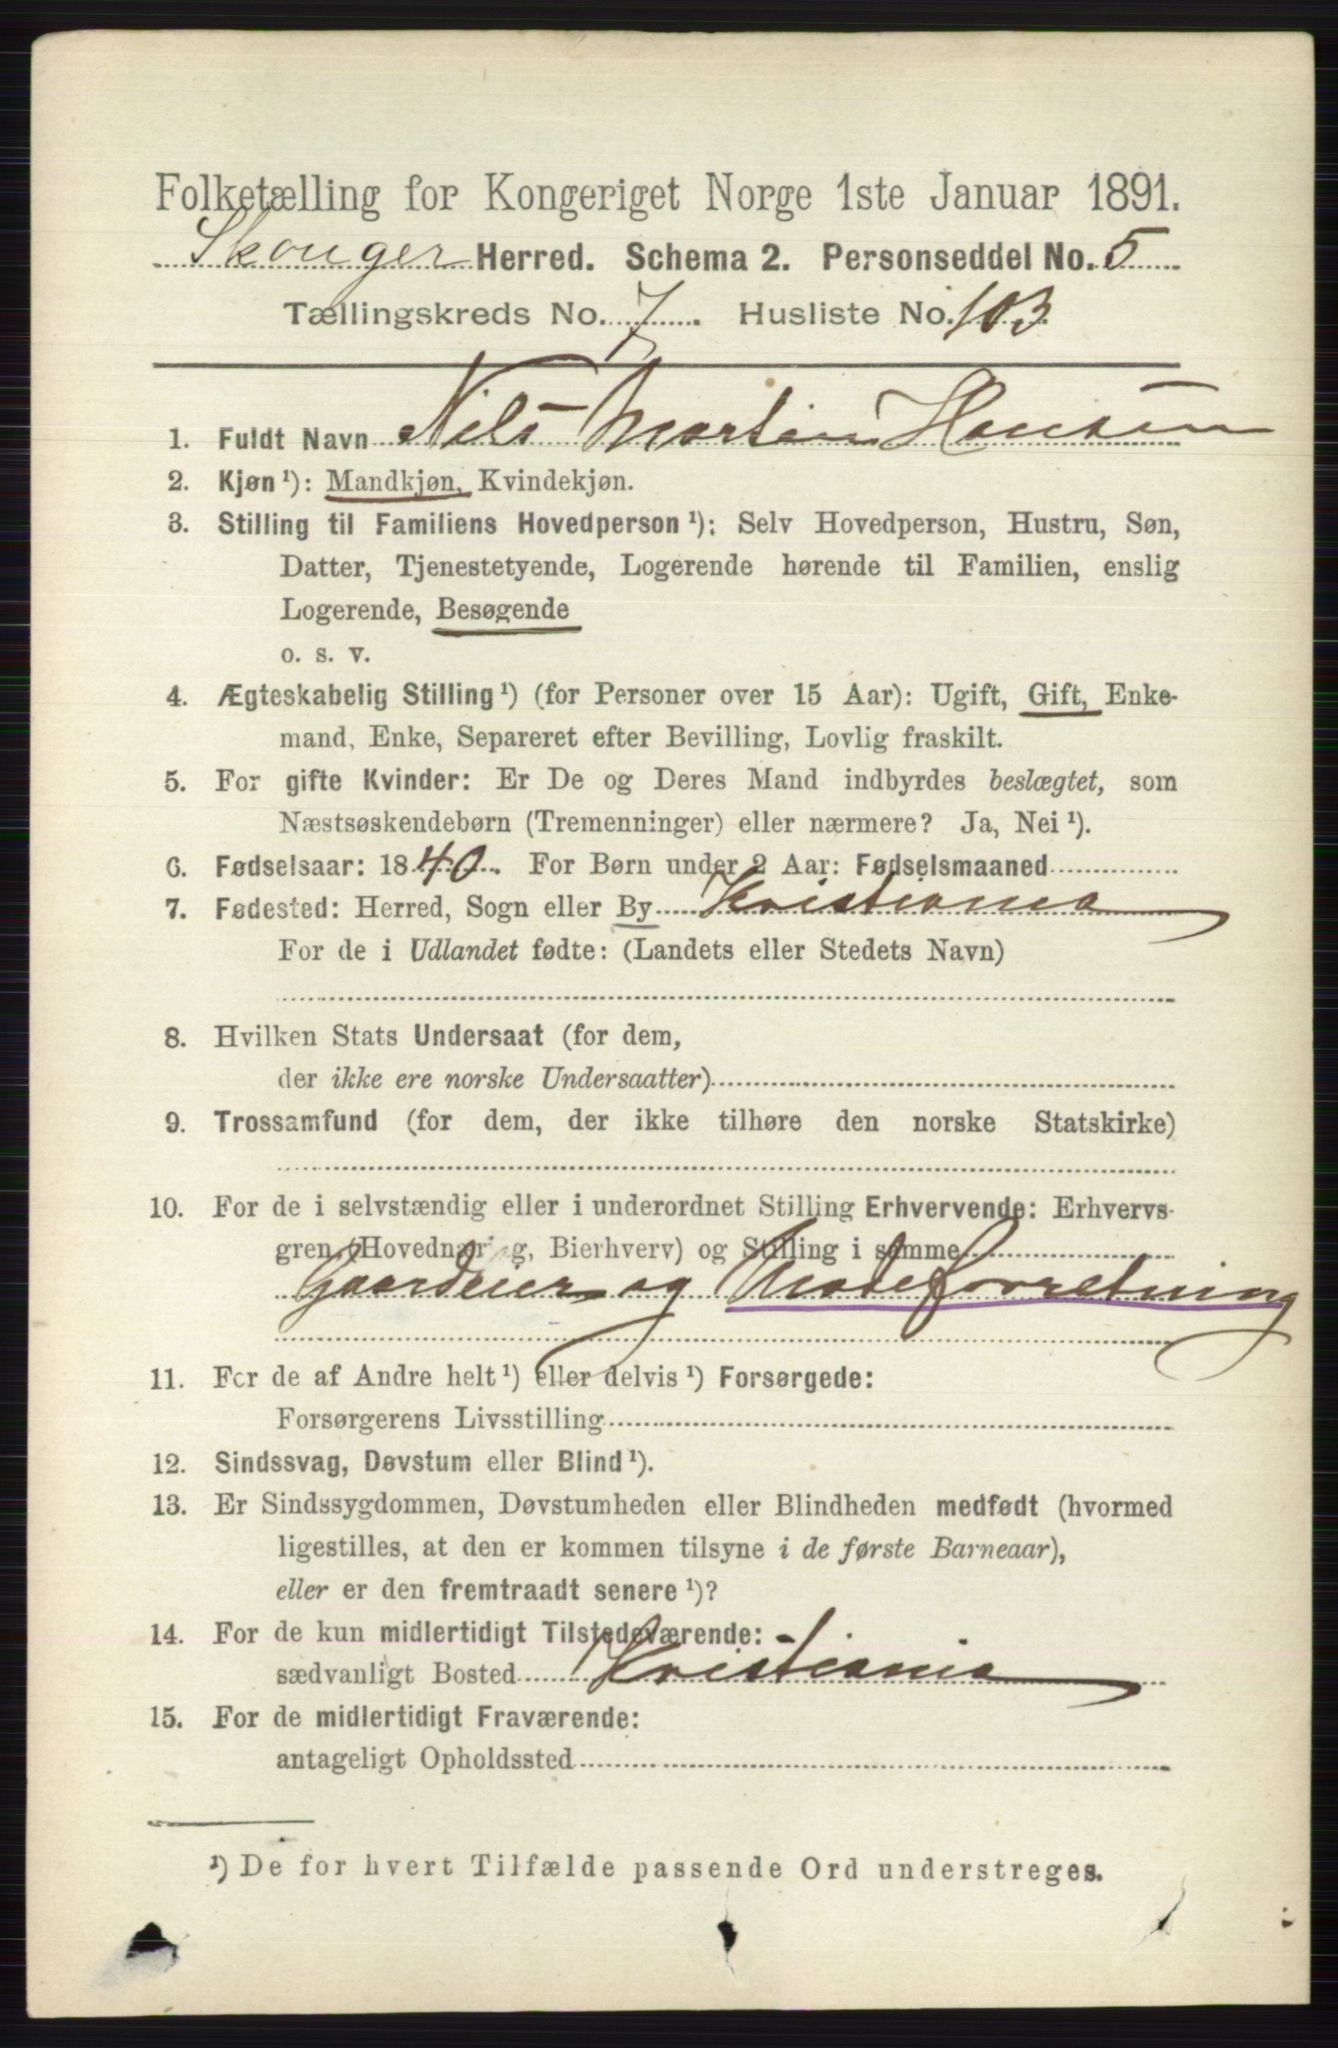 Folketælling for Kongeriget Norge 1ste Januar 1891.
Skouger Herred. Schema 2. Personseddel No. 5
Tællingskreds No. 7. Husliste No. 103.
1. Fuldt Navn Nils Martin Hansen
2. Kjøn ¹): Mandkjøn, Kvindekjøn.
3. Stilling til Familiens Hovedperson ¹): Selv Hovedperson, Hustru, Søn,
Datter, Tjenestetyende, Logerende hørende til Familien, enslig
Logerende, Besøgende
o. s. v.
4. Ægteskabelig Stilling ¹) (for Personer over 15 Aar): Ugift, Gift, Enke-
mand, Enke, Separeret efter Bevilling, Lovlig fraskilt.
5. For gifte Kvinder: Er De og Deres Mand indbyrdes beslægtet, som
Næstsøskendebørn (Tremenninger) eller nærmere? Ja, Nei ¹).
6. Fødselsaar: 1840. For Børn under 2 Aar: Fødselsmaaned
7. Fødested: Herred, Sogn eller By Kristiania
For de i Udlandet fødte: (Landets eller Stedets Navn)
8. Hvilken Stats Undersaat (for dem,
der ikke ere norske Undersaatter)
9. Trossamfund (for dem, der ikke tilhøre den norske Statskirke)
10. For de i selvstændig eller i underordnet Stilling Erhvervende: Erhvervs-
gren (Hovednæring, Bierhverv) og Stilling i samme
Gaardeier og Modeforretning
11. For de af Andre helt ¹) eller delvis ¹) Forsørgede:
Forsørgerens Livsstilling
12. Sindssvag, Døvstum eller Blind ¹).
13. Er Sindssygdommen, Døvstumheden eller Blindheden medfødt (hvormed
ligestilles, at den er kommen tilsyne i de første Barneaar),
eller er den fremtraadt senere ¹)?
14. For de kun midlertidigt Tilstedeværende:
sædvanligt Bosted Kristiania
15. For de midlertidigt Fraværende:
antageligt Opholdssted
¹) De for hvert Tilfælde passende Ord understreges.